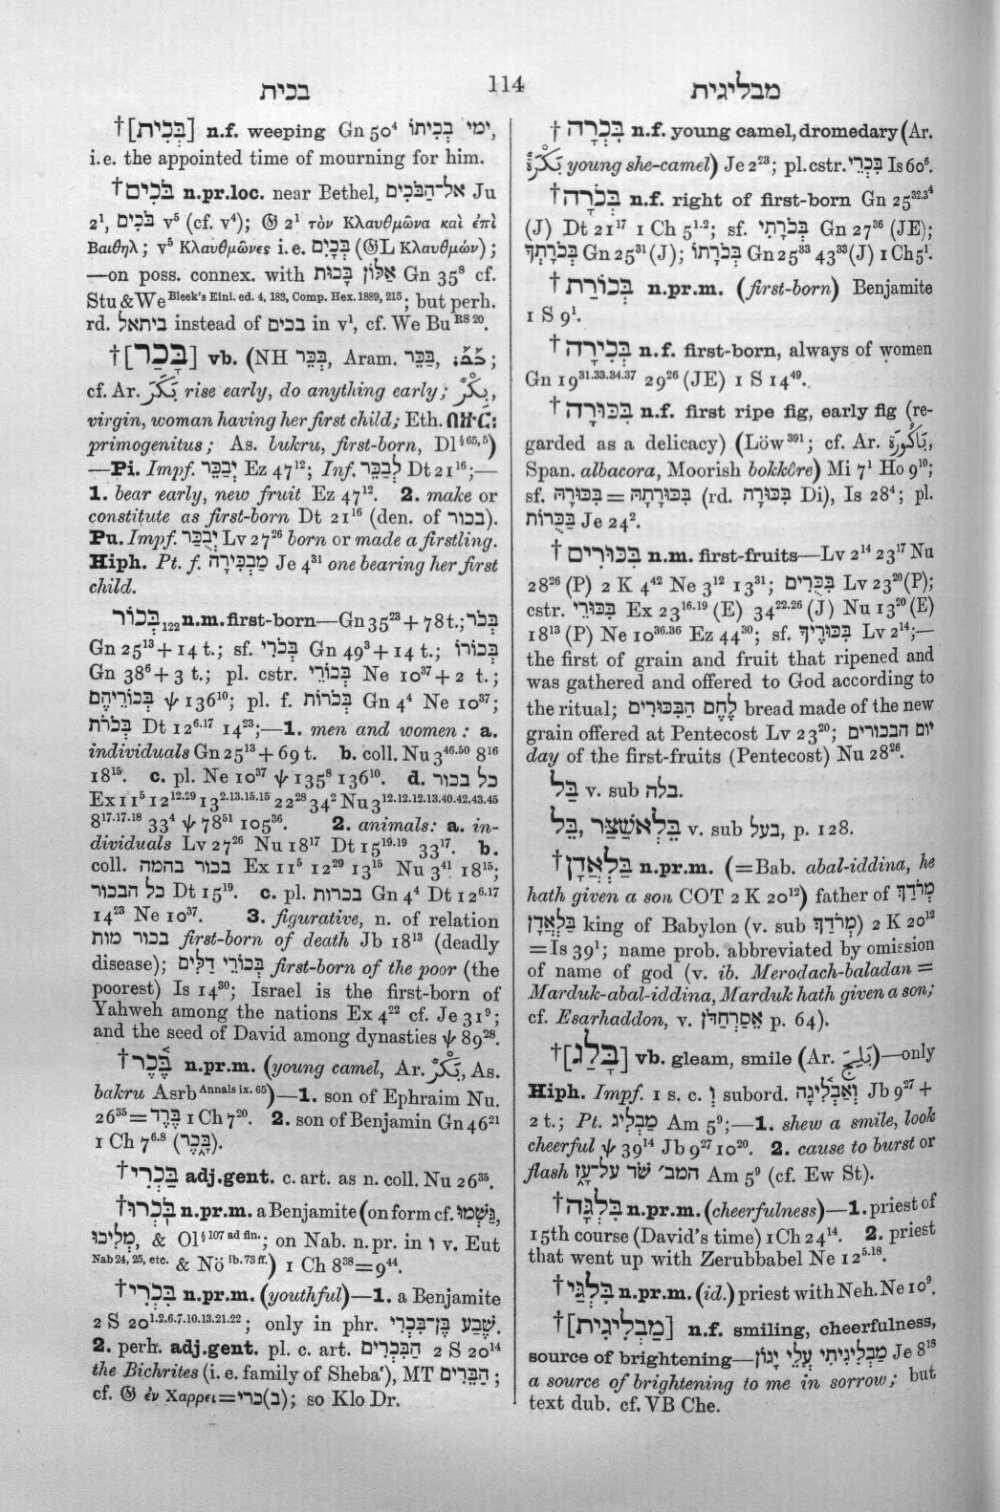 בכית
114
מבליגית
†[בְּכִית] n.f. weeping Gn 50⁴ יְמֵי בְכִיתוֹ,
i.e. the appointed time of mourning for him.
†בֹּכִים n.pr.loc. near Bethel, אֶל־הַבֹּכִים Ju
2¹, בֹּכִים v⁵ (cf. v⁴); 𝔊 2¹ τὸν Κλαυθμῶνα καὶ ἐπὶ
Βαιθηλ; v⁵ Κλαυθμῶνες i.e. בֹּכִים (𝔊L Κλαυθμών);
—on poss. connex. with אַלּוֹן בָּכוּת Gn 35⁸ cf.
Stu & We Bleek's Einl. ed. 4, 183, Comp. Hex. 1889, 215; but perh.
rd. ביתאל instead of בכים in v¹, cf. We Bu RS 20.
†[בָּכַר] vb. (NH בִּכֵּר, Aram. בַּכַּר, ;
cf. Ar. بَكَرَ rise early, do anything early; بِكْرٌ,
virgin, woman having her first child; Eth. በኵር:
primogenitus; As. bukru, first-born, Dl § 65, 5)
—Pi. Impf. יְבַכֵּר Ez 47¹²; Inf. לְבַכֵּר Dt 21¹⁶;—
1. bear early, new fruit Ez 47¹². 2. make or
constitute as first-born Dt 21¹⁶ (den. of בכור).
Pu. Impf. יְבֻכַּר Lv 27²⁶ born or made a firstling.
Hiph. Pt. f. מַבְכִּירָה Je 4³¹ one bearing her first
child.
בְּכוֹר 122 n.m. first-born—Gn 35²³ + 78 t.; בְּכֹר
Gn 25¹³ + 14 t.; sf. בְּכֹרִי Gn 49³ + 14 t.; בְּכוֹרוֹ
Gn 38⁶ + 3 t.; pl. cstr. בְּכוֹרֵי Ne 10³⁷ + 2 t.;
בְּכוֹרֵיהֶם ψ 136¹⁰; pl. f. בְּכֹרוֹת Gn 4⁴ Ne 10³⁷;
בְּכֹרֹת Dt 12⁶·¹⁷ 14²³;—1. men and women: a.
individuals Gn 25¹³ + 69 t. b. coll. Nu 3⁴⁶·⁵⁰ 8¹⁶
18¹⁵. c. pl. Ne 10³⁷ ψ 135⁸ 136¹⁰. d. כל בכור
Ex 11⁵ 12¹²·²⁹ 13²·¹³·¹⁵·¹⁵ 22²⁸ 34² Nu 3¹²·¹²·¹²·¹³·⁴⁰·⁴²·⁴³·⁴⁵
8¹⁷·¹⁷·¹⁸ 33⁴ ψ 78⁵¹ 105³⁶. 2. animals: a. in-
dividuals Lv 27²⁶ Nu 18¹⁷ Dt 15¹⁹·¹⁹ 33¹⁷. b.
coll. בכור בהמה Ex 11⁵ 12²⁹ 13¹⁵ Nu 3⁴¹ 18¹⁵;
כל הבכור Dt 15¹⁹. c. pl. בכרות Gn 4⁴ Dt 12⁶·¹⁷
14²³ Ne 10³⁷. 3. figurative, n. of relation
בכור מות first-born of death Jb 18¹³ (deadly
disease); בְּכוֹרֵי דַלִּים first-born of the poor (the
poorest) Is 14³⁰; Israel is the first-born of
Yahweh among the nations Ex 4²² cf. Je 31⁹;
and the seed of David among dynasties ψ 89²⁸.
†בֶּכֶר n.pr.m. (young camel, Ar. بَكْرٌ, As.
bakru Asrb Annals ix. 65)—1. son of Ephraim Nu.
26³⁵ = בֶּרֶד 1 Ch 7²⁰. 2. son of Benjamin Gn 46²¹
1 Ch 7⁶·⁸ (בָּכֶר).
†בַּכְרִי adj.gent. c. art. as n. coll. Nu 26³⁵.
†בֹּכְרוּ n.pr.m. a Benjamite (on form cf. גַּשְׁמוּ,
מְלִיכוּ, & Ol § 107 ad fin.; on Nab. n. pr. in ו v. Eut
Nab 24, 25, etc. & Nö ib. 73 ff.) 1 Ch 8³⁸ = 9⁴⁴.
†בִּכְרִי n.pr.m. (youthful)—1. a Benjamite
2 S 20¹·²·⁶·⁷·¹⁰·¹³·²¹·²²; only in phr. שֶׁבַע בֶּן־בִּכְרִי.
2. perh. adj.gent. pl. c. art. הַבִּכְרִים 2 S 20¹⁴
the Bichrites (i.e. family of Sheba'), MT הַבֵּרִים;
cf. 𝔊 ἐν Χαρρει = (ב)כרי; so Klo Dr.
†בִּכְרָה n.f. young camel, dromedary (Ar.
بَكْرَةٌ young she-camel) Je 2²³; pl. cstr. בִּכְרֵי Is 60⁶.
†בְּכֹרָה n.f. right of first-born Gn 25³²·³³·³⁴
(J) Dt 21¹⁷ 1 Ch 5¹·²; sf. בְּכֹרָתִי Gn 27³⁶ (JE);
בְּכֹרָתְךָ Gn 25³¹ (J); בְּכֹרָתוֹ Gn 25³³ 43³³ (J) 1 Ch 5¹.
†בְּכוֹרַת n.pr.m. (first-born) Benjamite
1 S 9¹.
†בְּכִירָה n.f. first-born, always of women
Gn 19³¹·³³·³⁴·³⁷ 29²⁶ (JE) 1 S 14⁴⁹.
†בִּכּוּרָה n.f. first ripe fig, early fig (re-
garded as a delicacy) (Löw 391; cf. Ar. بَاكُورَةٌ,
Span. albacora, Moorish bokkôre) Mi 7¹ Ho 9¹⁰;
sf. בִּכּוּרָהּ = בִּכּוּרָתָהּ (rd. בִּכּוּרָה Di), Is 28⁴; pl.
בַּכֻּרוֹת Je 24².
†בִּכּוּרִים n.m. first-fruits—Lv 2¹⁴ 23¹⁷ Nu
28²⁶ (P) 2 K 4⁴² Ne 3¹² 13³¹; בִּכֻּרִים Lv 23²⁰ (P);
cstr. בִּכּוּרֵי Ex 23¹⁶·¹⁹ (E) 34²²·²⁶ (J) Nu 13²⁰ (E)
18¹³ (P) Ne 10³⁶·³⁶ Ez 44³⁰; sf. בִּכּוּרֶיךָ Lv 2¹⁴;—
the first of grain and fruit that ripened and
was gathered and offered to God according to
the ritual; לֶחֶם הַבִּכּוּרִים bread made of the new
grain offered at Pentecost Lv 23²⁰; יום הבכורים
day of the first-fruits (Pentecost) Nu 28²⁶.
בַּל v. sub בלה.
בֵּל, בֵּלְאשַׁצַּר v. sub בעל, p. 128.
†בַּלְאֲדָן n.pr.m. (= Bab. abal-iddina, he
hath given a son COT 2 K 20¹²) father of מְרֹדַךְ
בַּלְאֲדָן king of Babylon (v. sub מְרֹדַךְ) 2 K 20¹²
= Is 39¹; name prob. abbreviated by omission
of name of god (v. ib. Merodach-baladan =
Marduk-abal-iddina, Marduk hath given a son;
cf. Esarhaddon, v. אֵסַרְחַדֹּן p. 64).
†[בָּלַג] vb. gleam, smile (Ar. بَلِجَ)—only
Hiph. Impf. 1 s. c. וְ subord. וְאַבְלִיגָה Jb 9²⁷ +
2 t.; Pt. מַבְלִיג Am 5⁹;—1. shew a smile, look
cheerful ψ 39¹⁴ Jb 9²⁷ 10²⁰. 2. cause to burst or
flash המב׳ שֹׁד עַל־עָז Am 5⁹ (cf. Ew St).
†בִּלְגָּה n.pr.m. (cheerfulness)—1. priest of
15th course (David's time) 1 Ch 24¹⁴. 2. priest
that went up with Zerubbabel Ne 12⁵·¹⁸.
†בִּלְגַּי n.pr.m. (id.) priest with Neh. Ne 10⁹.
†[מַבְלִיגִית] n.f. smiling, cheerfulness,
source of brightening—מַבְלִיגִיתִי עֲלֵי יָגוֹן Je 8¹⁸
a source of brightening to me in sorrow; but
text dub. cf. VB Che.